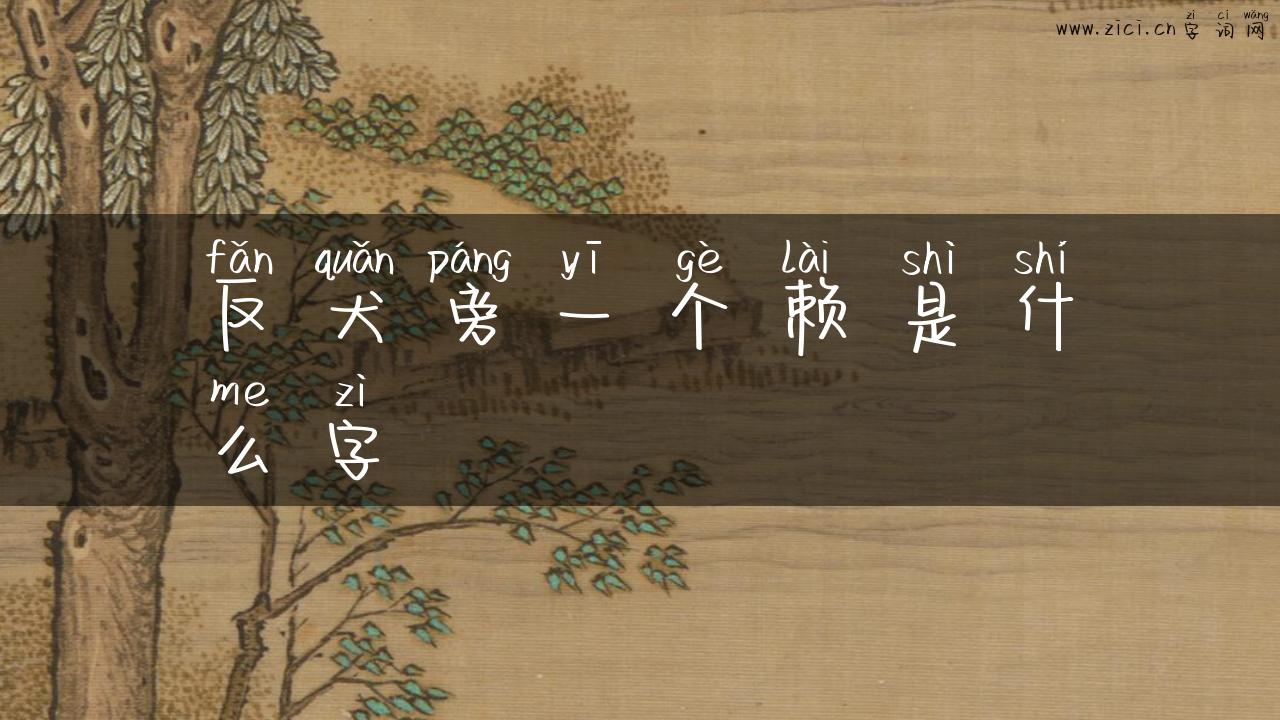 zì cí wǎng
www.zici.cn 字 词 网
fǎn quǎn páng yī gè lài shì shí
反 犬 旁 一 个 赖 是 什
me zì
么 字